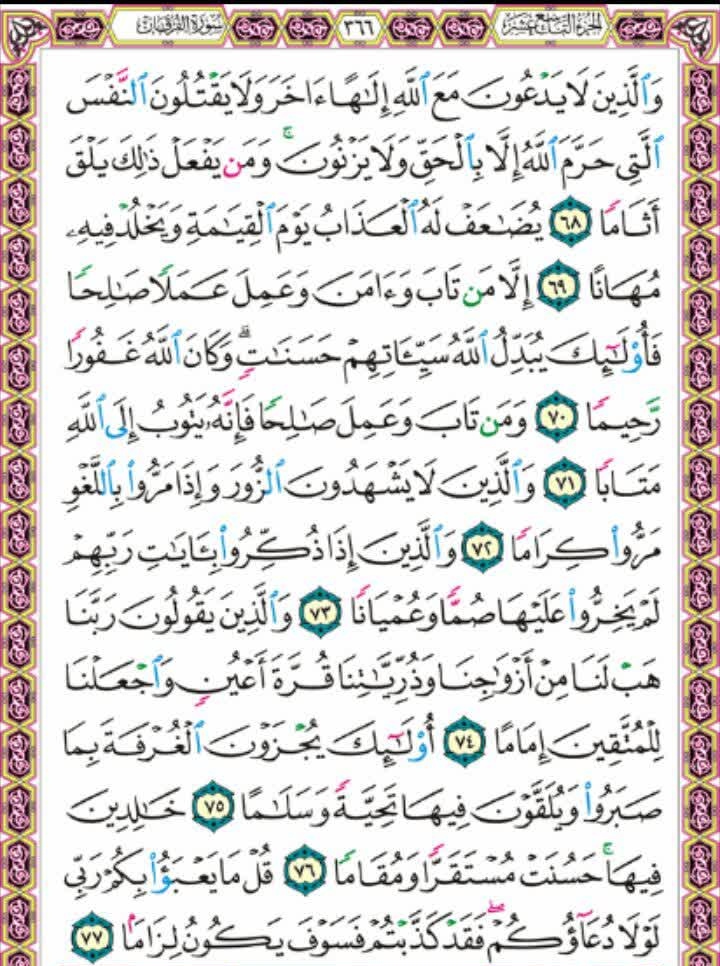 الجزء التاسع عشر ٣٦٦ سورة الفرقان
وَٱلَّذِينَ لَا يَدْعُونَ مَعَ ٱللَّهِ إِلَٰهًا ءَاخَرَ وَلَا يَقْتُلُونَ ٱلنَّفْسَ
ٱلَّتِى حَرَّمَ ٱللَّهُ إِلَّا بِٱلْحَقِّ وَلَا يَزْنُونَ ۚ وَمَن يَفْعَلْ ذَٰلِكَ يَلْقَ
أَثَامًا ٦٨ يُضَٰعَفْ لَهُ ٱلْعَذَابُ يَوْمَ ٱلْقِيَٰمَةِ وَيَخْلُدْ فِيهِۦ
مُهَانًا ٦٩ إِلَّا مَن تَابَ وَءَامَنَ وَعَمِلَ عَمَلًا صَٰلِحًا
فَأُو۟لَٰٓئِكَ يُبَدِّلُ ٱللَّهُ سَيِّـَٔاتِهِمْ حَسَنَٰتٍ ۗ وَكَانَ ٱللَّهُ غَفُورًا
رَّحِيمًا ٧٠ وَمَن تَابَ وَعَمِلَ صَٰلِحًا فَإِنَّهُۥ يَتُوبُ إِلَى ٱللَّهِ
مَتَابًا ٧١ وَٱلَّذِينَ لَا يَشْهَدُونَ ٱلزُّورَ وَإِذَا مَرُّوا۟ بِٱللَّغْوِ
مَرُّوا۟ كِرَامًا ٧٢ وَٱلَّذِينَ إِذَا ذُكِّرُوا۟ بِـَٔايَٰتِ رَبِّهِمْ
لَمْ يَخِرُّوا۟ عَلَيْهَا صُمًّا وَعُمْيَانًا ٧٣ وَٱلَّذِينَ يَقُولُونَ رَبَّنَا
هَبْ لَنَا مِنْ أَزْوَٰجِنَا وَذُرِّيَّٰتِنَا قُرَّةَ أَعْيُنٍ وَٱجْعَلْنَا
لِلْمُتَّقِينَ إِمَامًا ٧٤ أُو۟لَٰٓئِكَ يُجْزَوْنَ ٱلْغُرْفَةَ بِمَا
صَبَرُوا۟ وَيُلَقَّوْنَ فِيهَا تَحِيَّةً وَسَلَٰمًا ٧٥ خَٰلِدِينَ
فِيهَا ۚ حَسُنَتْ مُسْتَقَرًّا وَمُقَامًا ٧٦ قُلْ مَا يَعْبَؤُا۟ بِكُمْ رَبِّى
لَوْلَا دُعَآؤُكُمْ ۖ فَقَدْ كَذَّبْتُمْ فَسَوْفَ يَكُونُ لِزَامًۢا ٧٧